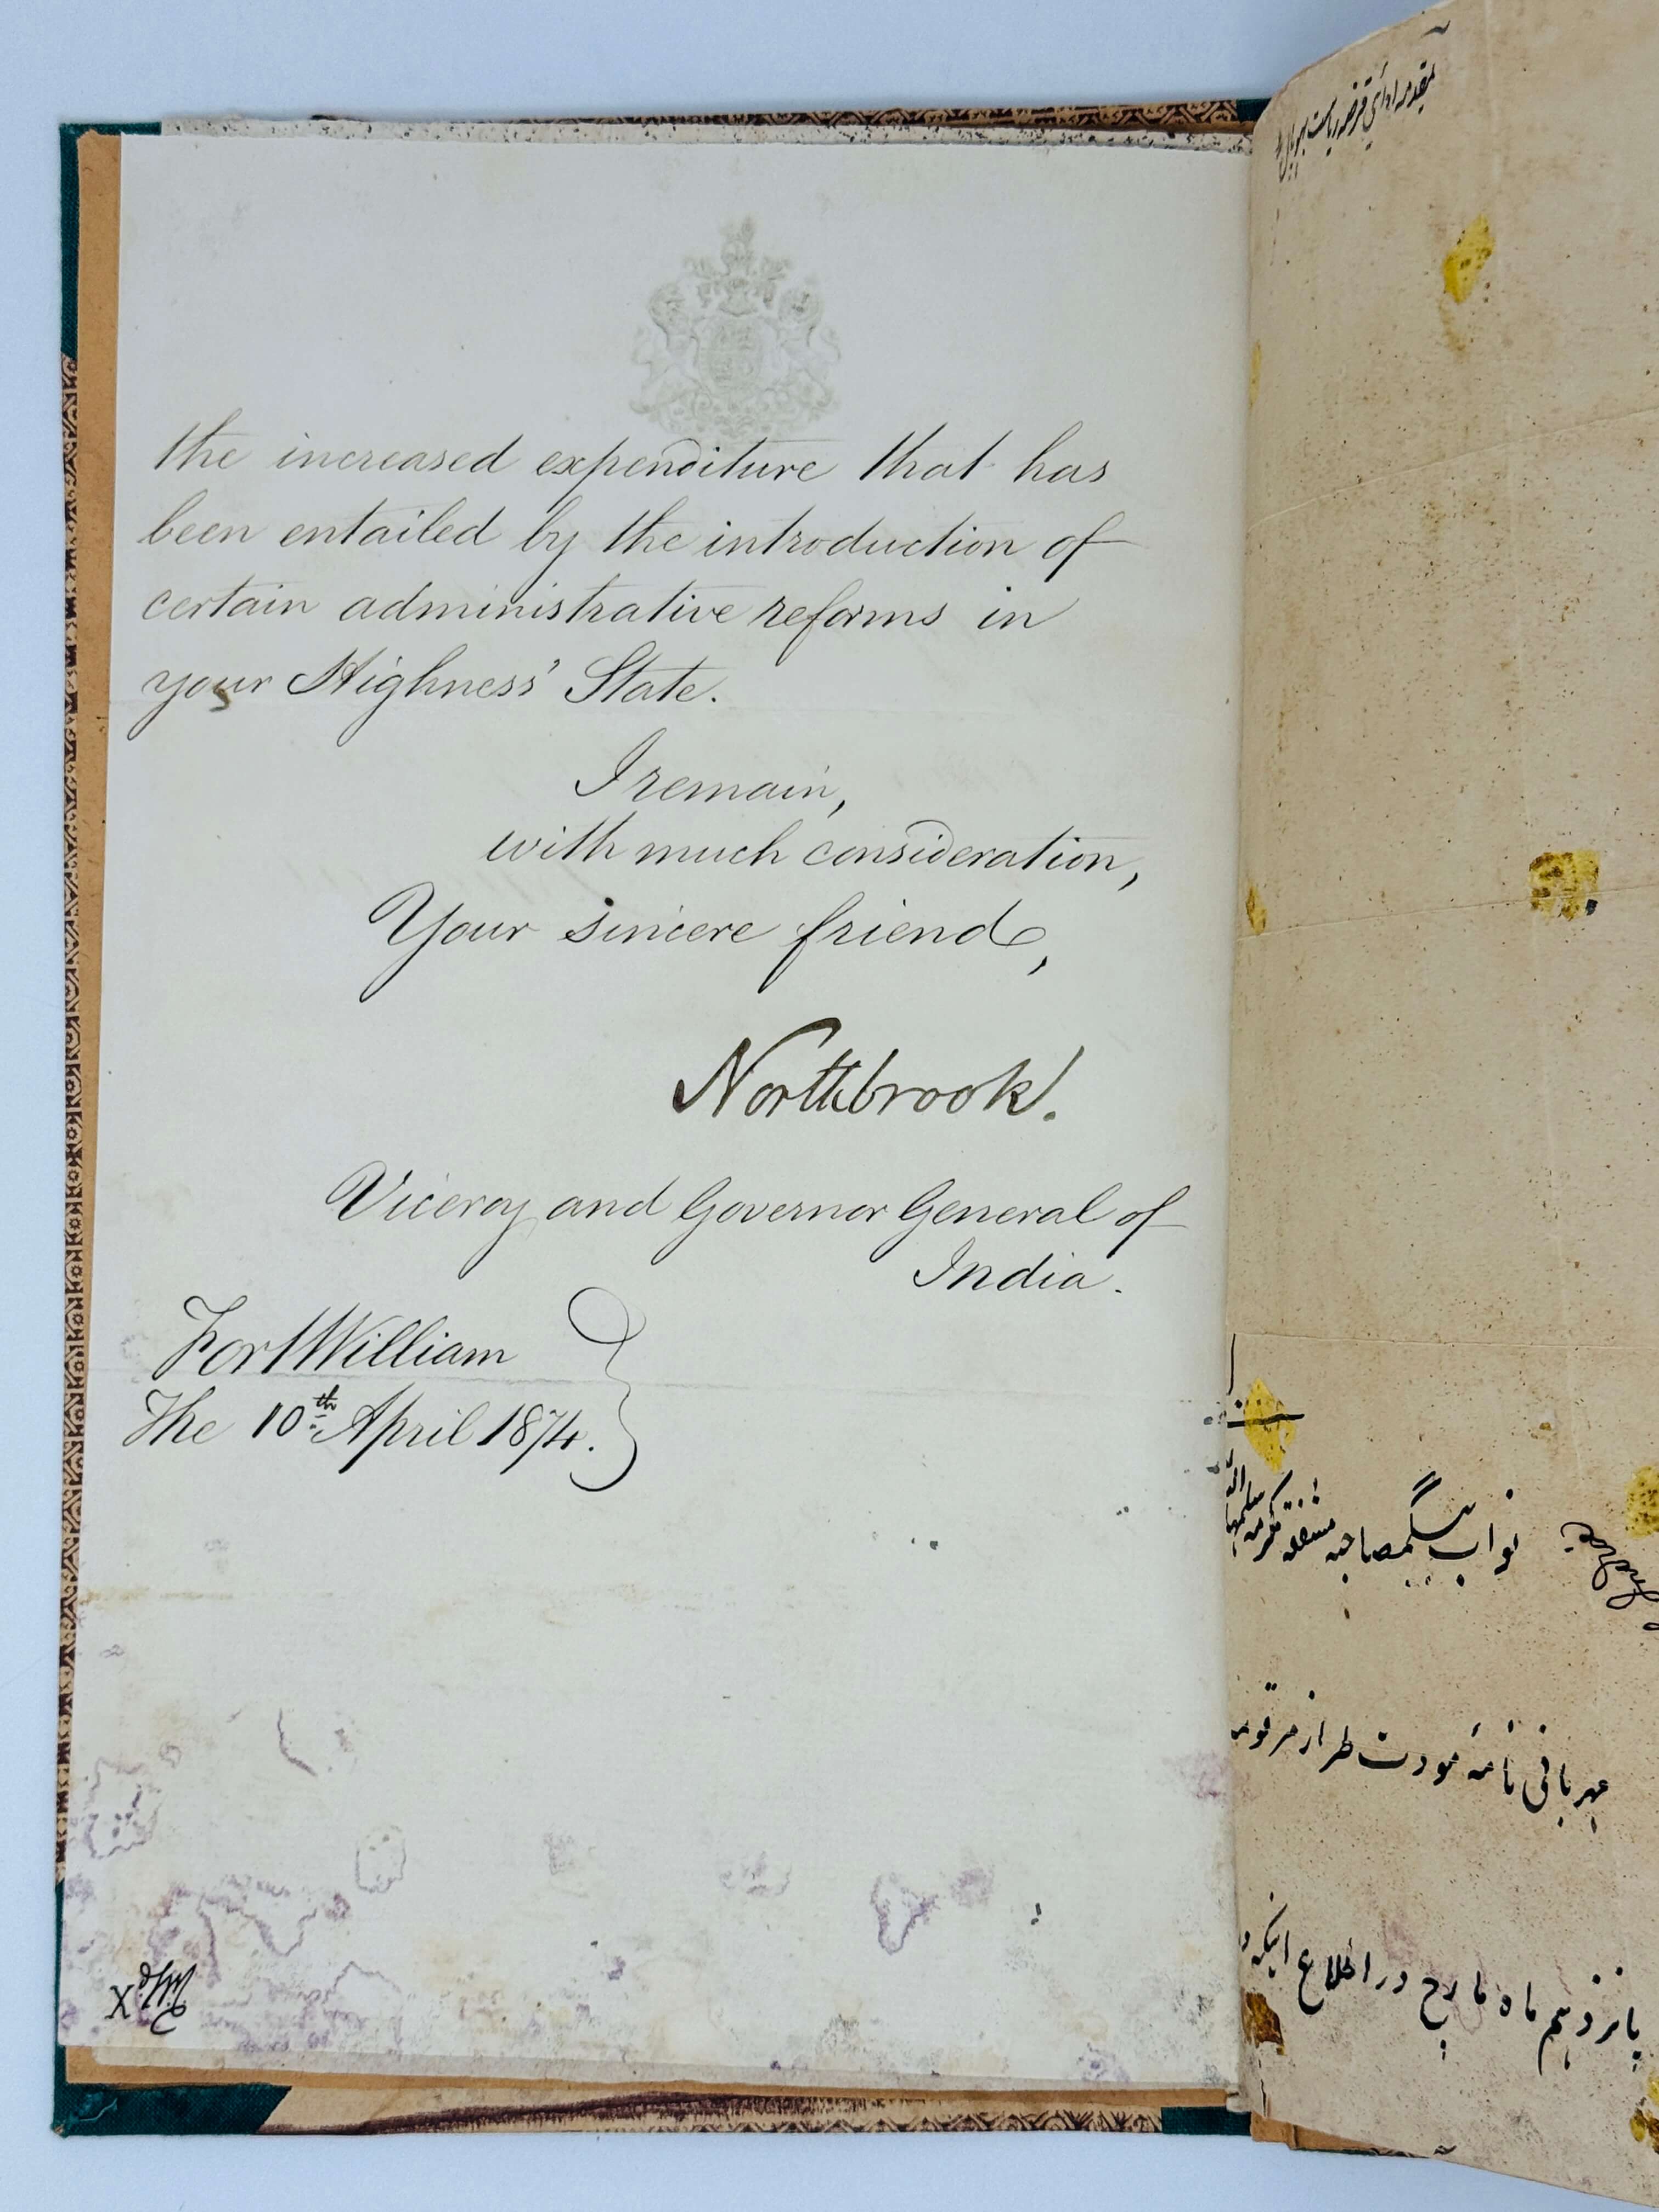 the increased expenditure that has
been entailed by the introduction of
certain administrative reforms in
your Highness' State.
I remain,
with much consideration,
Your sincere friend,
Northbrook.
Viceroy and Governor General of
India.
Fort William
The 10th April 1874.
X
بمقدمه ادای قرضه ریاست بهوپال
نواب بیگم صاحبه مشفقه مکرمه سلمها الله
مهربانی نامهٔ مودت طراز مرقومه
پانزدهم ماه مارچ در اطلاع اینکه